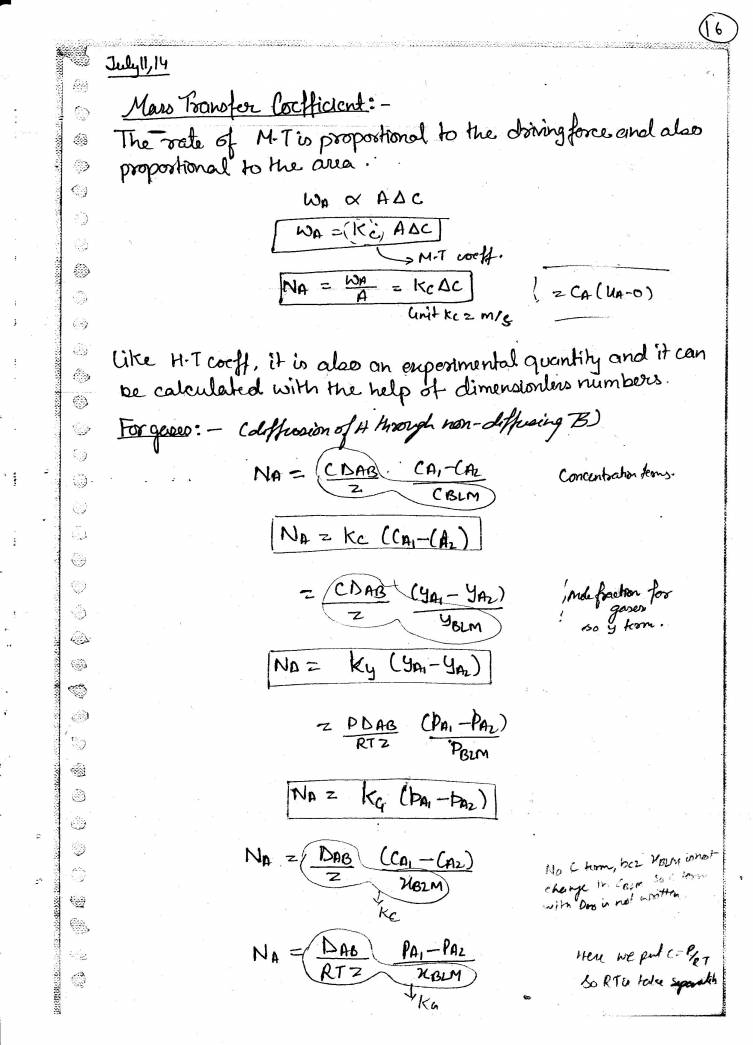 16
July 11, 14
Mass Transfer Coefficient :-
The rate of M.T is proportional to the driving force and also
proportional to the area.
WA ∝ A ΔC
WA = (Kc) A ΔC
→ M.T coeff.
NA = WA/A = Kc ΔC
= CA (UA-0)
Unit Kc = m/s
Like H.T coeff, it is also an experimental quantity and it can
be calculated with the help of dimensionless numbers.
For gases :- (diffusion of A through non-diffusing B)
NA = CDAB/Z . CA1-CA2/CBLM
Concentration terms.
NA = Kc (CA1-CA2)
= CDAB/Z (yA1-yA2)/yBLM
mole fraction for
gases
so y term.
NA = Ky (yA1-yA2)
= PDAB/RTZ (PA1-PA2)/PBLM
NA = KG (PA1-PA2)
NA = DAB/Z (CA1-CA2)/xBLM
No C term, bcz xBLM is not
change in CBLM so C term
with DAB is not written
Kc
NA = DAB/RTZ PA1-PA2/xBLM
Here we put C=P/RT
So RT is take separately
KG